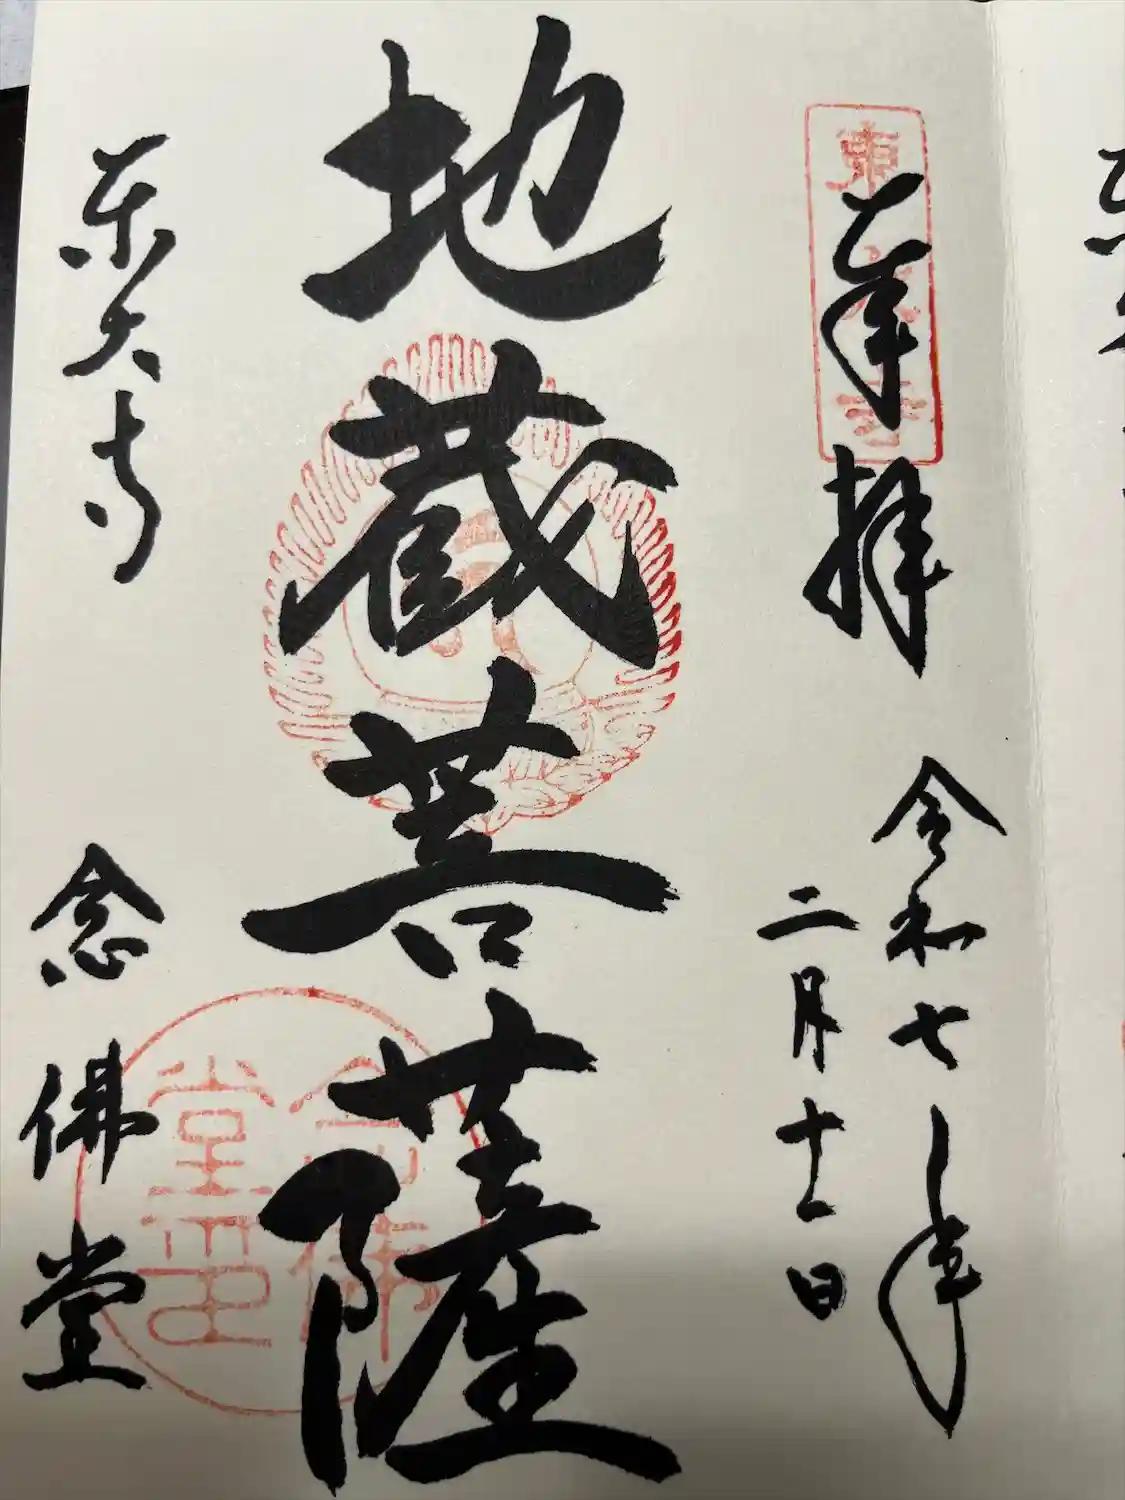 奉拝
令和七年
二月十一日
地蔵菩薩
東大寺
念佛堂
東大寺
念佛堂印